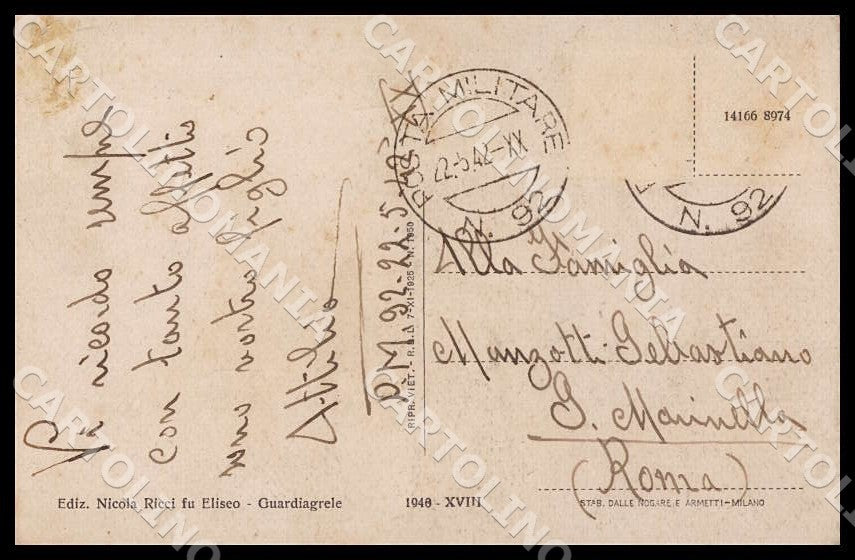 Vi ricordo sempre
con tanto affetto
sono vostro figlio
Attilio
P.M. 92-22-5-42-XX
POSTA MILITARE
22.5.42-XX
N. 92
N. 92
14166 8974
Alla Famiglia
Manzotti Sebastiano
S. Marinella
(Roma)
RIPR. VIET. - R.B.D. 7-XI-1925 - N. 1950
Ediz. Nicola Ricci fu Eliseo - Guardiagrele
1940 - XVIII
STAB. DALLE NOGARE E ARMETTI - MILANO
CARTOLINOMANIA